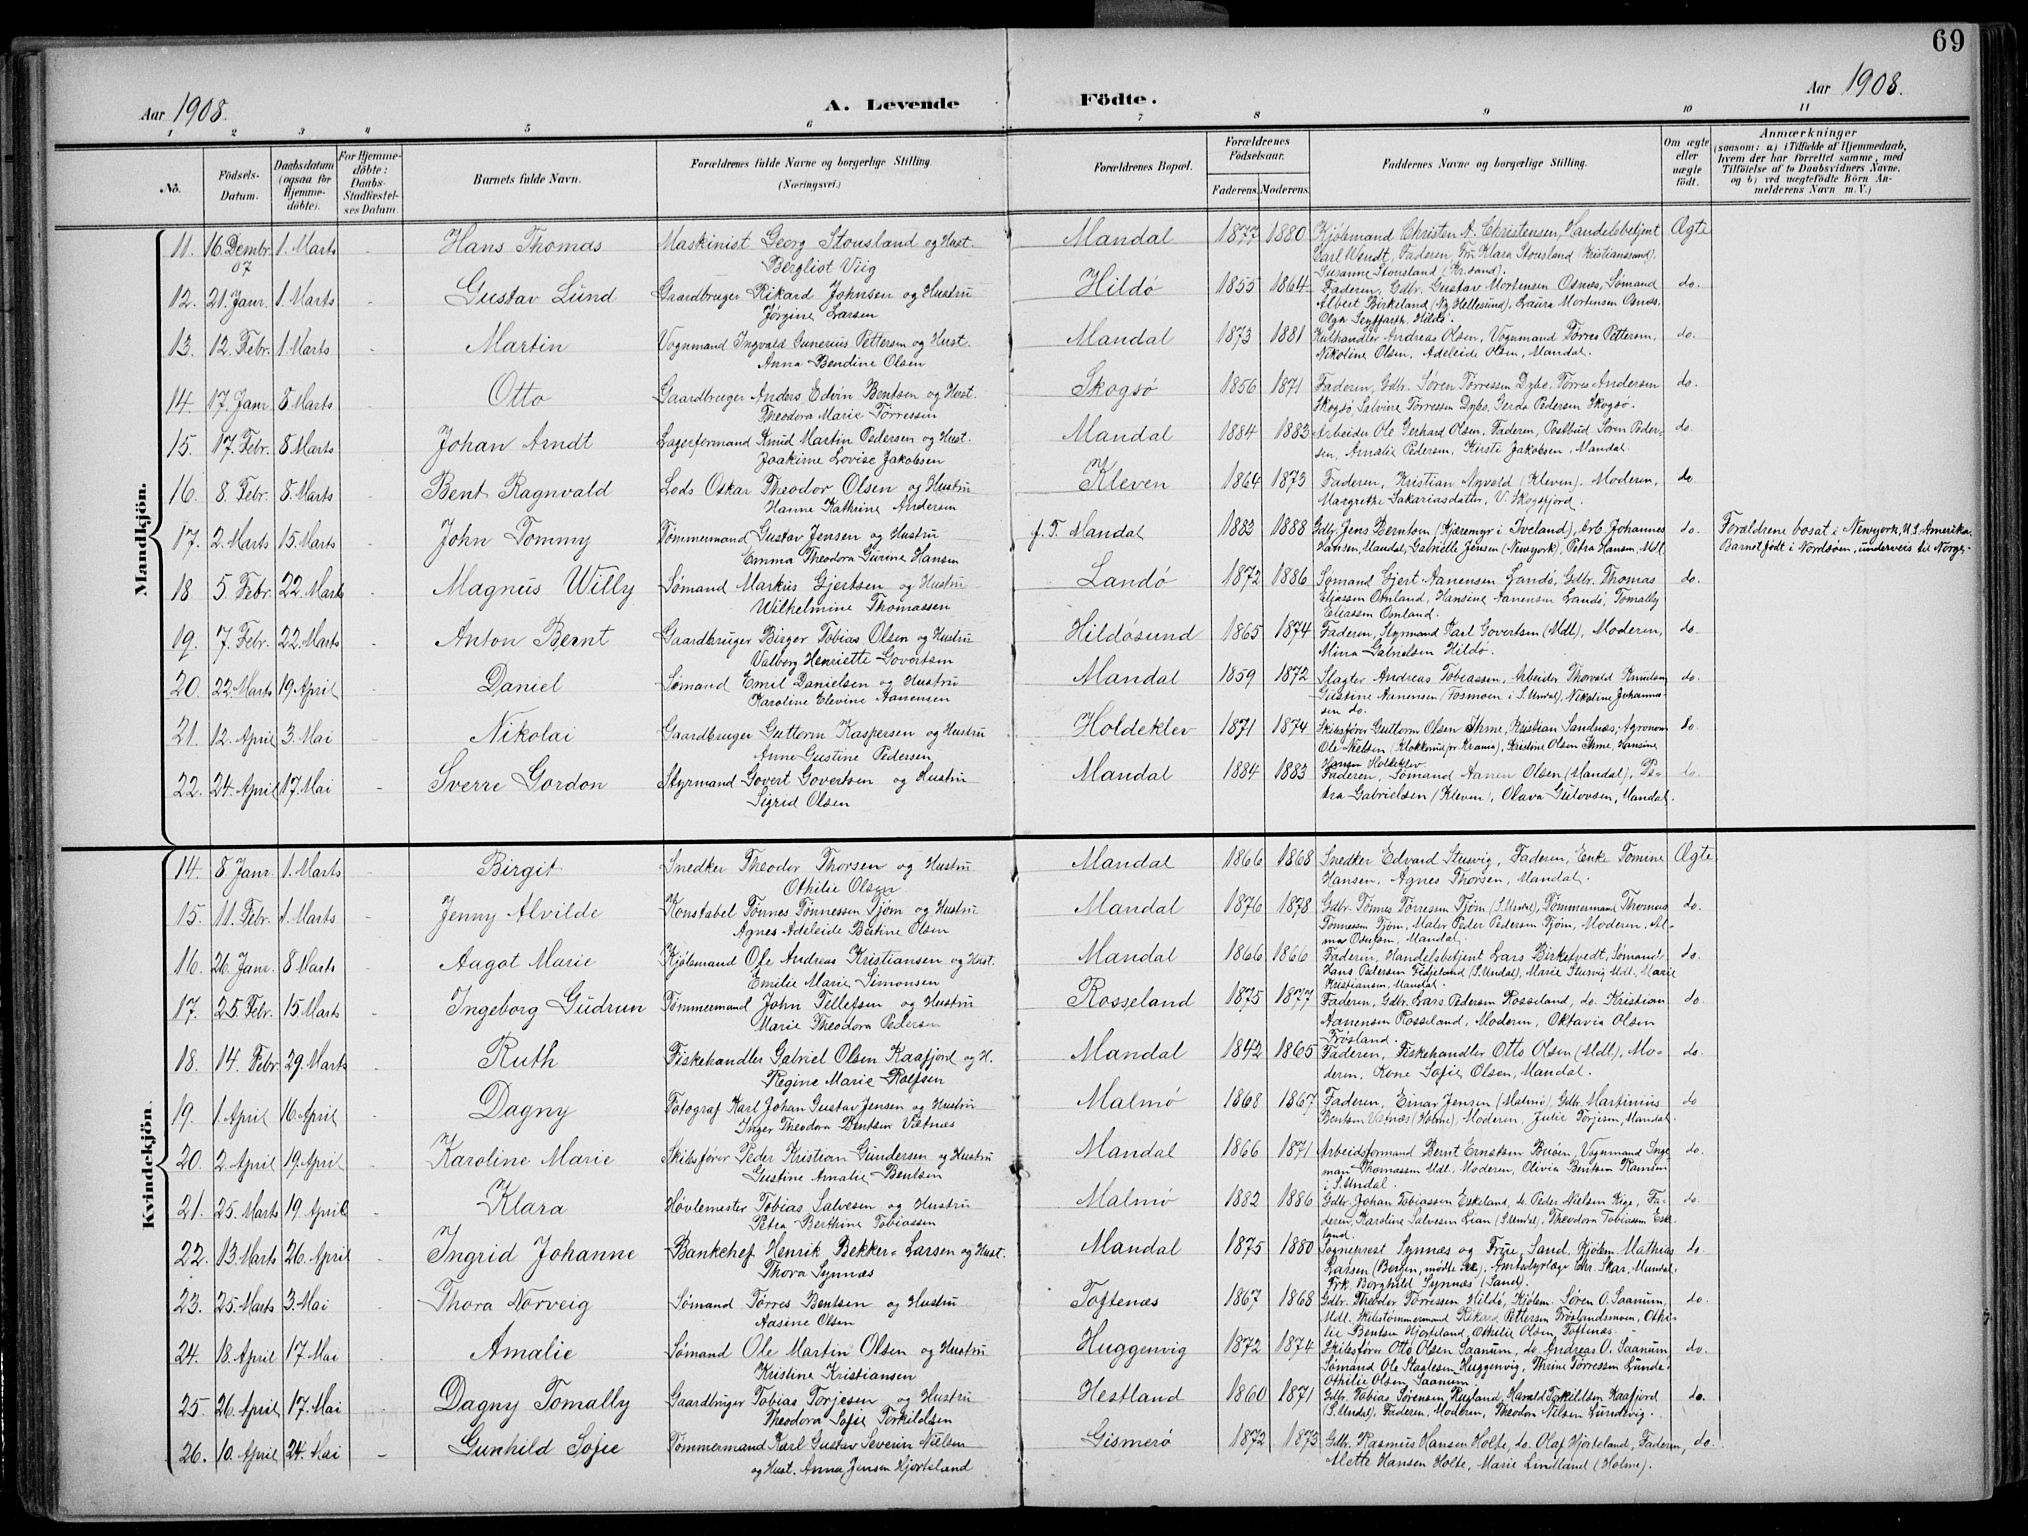 69
Aar 1908. A. Levende Födte. Aar 1908.
1 2 3 4 5 6 7 8 9 10 11
No.
Födsels-Datum.
Daabsdatum (ogsaa for Hjemme-döbte).
For Hjemme-döbte: Daabs-Stadfæstel-ses Datum.
Barnets fulde Navn.
Forældrenes fulde Navne og borgerlige Stilling. (Næringsvei.)
Forældrenes Bopæl.
Forældrenes Födselsaar.
Faderens. Moderens.
Faddernes Navne og borgerlige Stilling.
Om ægte eller uægte födt.
Anmærkninger
(saasom: a) i Tilfælde af Hjemmedaab,
hvem der har forrettet samme, med
Tilföielse af to Daabsvidners Navne,
og b) ved uægtefödte Börn An-
melderens Navn m. V.)
Mandkjön.
11. 16. Dembr. 07 1. Marts - Hans Thomas Maskinist Georg Stousland og Hust. Mandal 1877 1880 Kjøbmand Christen A. Christensen, Handelsbetjent Ægte
Bergliot Viig Carl Wendt, Faderen, Fru Klara Stousland (Kristianssand),
Susanne Stousland (Kr.sand).
12. 21. Janr. 1. Marts - Gustav Lund Gaardbruger Rikard Johnsen og Hustru Hildø 1855 1864 Faderen, Gdbr. Gustav Mortensen Osnes, Sømand do.
Jørgine Larsen Albert Birkeland (Ny Hellesund), Laura Mortensen Osnes,
Olga Seyffarth, Hildø.
13. 12. Febr. 1. Marts - Martin Vognmand Ingvald Gunerius Pettersen og Hust. Mandal 1873 1881 Kulhandler Andreas Olsen, Vognmand Tørres Pettersen, do.
Anna Bendine Olsen Nikoline Olsen, Adeleide Olsen, Mandal.
14. 17. Janr. 8. Marts - Otto Gaardbruger Anders Edvin Bentsen og Hust. Skogsø 1856 1871 Faderen, Gdbr. Søren Tørressen Dybo, Tørres Andersen do.
Theodora Marie Tørressen Skogsø, Salvine Tørressen Dybo, Gerda Pedersen Skogsø.
15. 17. Febr. 8. Marts - Johan Arndt Lagerformand Knud Martin Pedersen og Hust. Mandal 1884 1883 Arbeider Ole Gerhard Olsen, Faderen, Postbud Søren Peder- do.
Joakime Lovise Jakobsen sen, Amalie Pedersen, Kirsti Jakobsen, Mandal.
16. 8. Febr. 8. Marts - Bent Ragnvald Lods Oskar Theodor Olsen og Hustru Kleven 1864 1873 Faderen, Kristian Nyvold (Kleven), Moderen, do.
Hanne Kathrine Andersen Margrethe Sakariasdatter, V. Skogsfjord.
17. 2. Marts 15. Marts - John Tommy Tømmermand Gustav Jensen og Hustru f. T. Mandal 1883 1888 Gdbr. Jens Berntsen (Kjæremyr i Iveland), Arb. Johannes do. Forældrene bosat i Newyork, U. S. Amerika.
Emma Theodora Gurine Hansen Hansen, Mandal, Gabrielle Jensen (Newyork), Petra Hansen, Mdl. Barnet født i Nordsøen, underveis til Norge.
18 5. Febr. 22. Marts - Magnus Willy Sømand Markus Gjertsen og Hustru Landø 1872 1886 Sømand Gjert Aanensen Landø, Gdbr. Thomas do.
Wilhelmine Thomassen Eliassen Omland, Hansine Aanensen Landø, Tomally
Eliassen Omland.
19. 7. Febr. 22. Marts - Anton Bernt Gaardbruger Birger Tobias Olsen og Hustru Hildøsund 1865 1874 Faderen, Styrmand Karl Govertsen (Mdl), Moderen, do.
Valborg Henriette Govertsen Mina Gabrielsen Hildø.
20. 22. Marts 19. April - Daniel Sømand Emil Danielsen og Hustru Mandal 1859 1872 Slagter Andreas Tobiassen, Arbeider Thorvald Knudsen do.
Karoline Elevine Aanensen Gustine Aanensen (Fosmoen i S. Undal), Nikoline Johannes-
sen do.
21. 12. April 3. Mai - Nikolai Gaardbruger Guttorm Kaspersen og Hustru Holdeklev 1871 1874 Skibsfører Guttorm Olsen Ihme, Kristian Sandnæs, Agronom do.
Anne Gustine Pedersen Ole Nielsen (Klokkerud pr Krania), Kristine Olsen Ihme, Hansine
Hansen Holdeklev
22. 24. April 17. Mai - Sverre Gordon Styrmand Govert Govertsen og Hustru Mandal 1884 1883 Faderen, Sømand Aanen Olsen (Mandal), Pe- do.
Sigrid Olsen tra Gabrielsen (Kleven), Olava Gulovsen, Mandal.
Kvindekjön.
14. 8. Janr 1. Marts - Birgit Snedker Theodor Thorsen og Hustru Mandal 1866 1868 Snedker Edvard Stusvig, Faderen, Enke Tomine Ægte
Othilie Olsen Hansen, Agnes Thorsen, Mandal.
15. 11. Febr. 1. Marts - Jenny Alvilde Konstabel Tønnes Tønnessen Tjøm og Hustru Mandal 1876 1878 Gdbr. Tønnes Tørresen Tjøm (S. Undal), Tømmermand Thomas do.
Agnes Adeleide Bertine Olsen Tønnessen Tjøm, Maler Peder Pedersen Tjøm, Moderen, Al-
ma Osufsen, Mandal.
16. 26. Janr. 8. Marts - Aagot Marie Kjøbmand Ole Andreas Kristiansen og Hust. Mandal 1866 1866 Faderen, Handelsbetjent Lars Birketvedt, Sømand do.
Emilie Marie Simonsen Hans Pedersen Fidjeland (S. Undal), Marie Stusvig Mdl, Marie
Kristiansen, Mandal.
17. 25. Febr. 15. Marts - Ingeborg Gudrun Tømmermand John Tellefsen og Hustru Rosseland 1875 1877 Faderen, Gdbr. Lars Pedersen Rosseland, do. Kristian do.
Marie Theodora Pedersen Aanensen Rosseland, Moderen, Oktavia Olsen
Frøsland.
18. 14. Febr 29. Marts - Ruth Fiskehandler Gabriel Olsen Kaafjord og H. Mandal 1842 1865 Faderen, Fiskehandler Otto Olsen (Mdl), Mo- do.
Regine Marie Rolfsen deren, Kone Sofie Olsen, Mandal.
19. 1. April 16. April - Dagny Fotograf Karl Johan Gustav Jensen og Hustru Malmø 1868 1867 Faderen, Einar Jensen (Malmø), Gdbr. Martinius do
Inger Theodora Bentsen Vætnæs Bentsen Vætnæs (Holme), Moderen, Julie Torjesen, Mandal.
20. 2. April 19. April - Karoline Marie Skibsfører Peder Kristian Gundersen og Hustru Mandal 1866 1871 Arbeidsformand Bernt Ernstsen Briøen, Vognmand Inge- do.
Gustine Amalie Bentsen man Thomassen Mdl. Moderen, Olivia Bentsen Ramsøn
i S. Undal.
21. 25. Marts 19. April - Klara Høvlemester Tobias Salvesen og Hustru Malmø 1882 1886 Gdbr. Johan Tobiassen Eskeland, do Peder Nielsen Kige, Fa- do.
Petra Berthine Tobiassen deren, Karoline Salvesen Lian (S. Undal), Theodora Tobiassen Eske-
land.
22. 13. Marts 26. April - Ingrid Johanne Bankchef Henrik Bekker-Larsen og Hust. Mandal 1875 1880 Sogneprest Synnæs og Frue, Sand, Kjøbm. Mathias do.
Thora Synnæs Larsen (Bergen, mødte ikke), Amtsdyrlæge Chr. Skar, Mandal,
Frk. Borghild Synnæs (Sand).
23. 25. Marts 3. Mai - Thora Norveig Sømand Tørres Bentsen og Hustru Toftenæs 1867 1868 Gdbr. Theodor Tørressen Hildø, Kjøbm. Søren O. Saanum, do.
Aasine Olsen Mdl. Skibstømmermand Rikard Pettersen Frøslandsmoen, Othi-
lie Bentsen Hjorteland, Othilie Olsen, Toftenæs.
24. 18. April 17. Mai - Amalie Sømand Ole Martin Olsen og Hustru Huggenvig 1872 1874 Skibsfører Otto Olsen Saanum, do Andreas O. Saanum, do.
Kristine Kristiansen Sømand Ole Staalesen Huggenvig, Thrine Tørressen Lunde.
Othilie Olsen, Saanum.
25. 26. April 17. Mai - Dagny Tomally Gaardbruger Tobias Torjesen og Hustru Hestland 1860 1871 Gdbr. Tobias Sørensen Husland, Harald Torkildsen Kaafjord do.
Theodora Sofie Torkildsen (S. Undal), Faderen, Moderen, Theodora Nilsen Lundevig.
26. 10. April 24. Mai - Gunhild Sofie Tømmermand Karl Gustav Severin Nielsen Gismerø 1872 1873 Gdbr. Rasmus Hansen Holte, do. Olaf Hjorteland, Faderen, do.
og Hust. Anna Jensen Hjorteland Alette Hansen Holte, Marie Lindland (Holme).